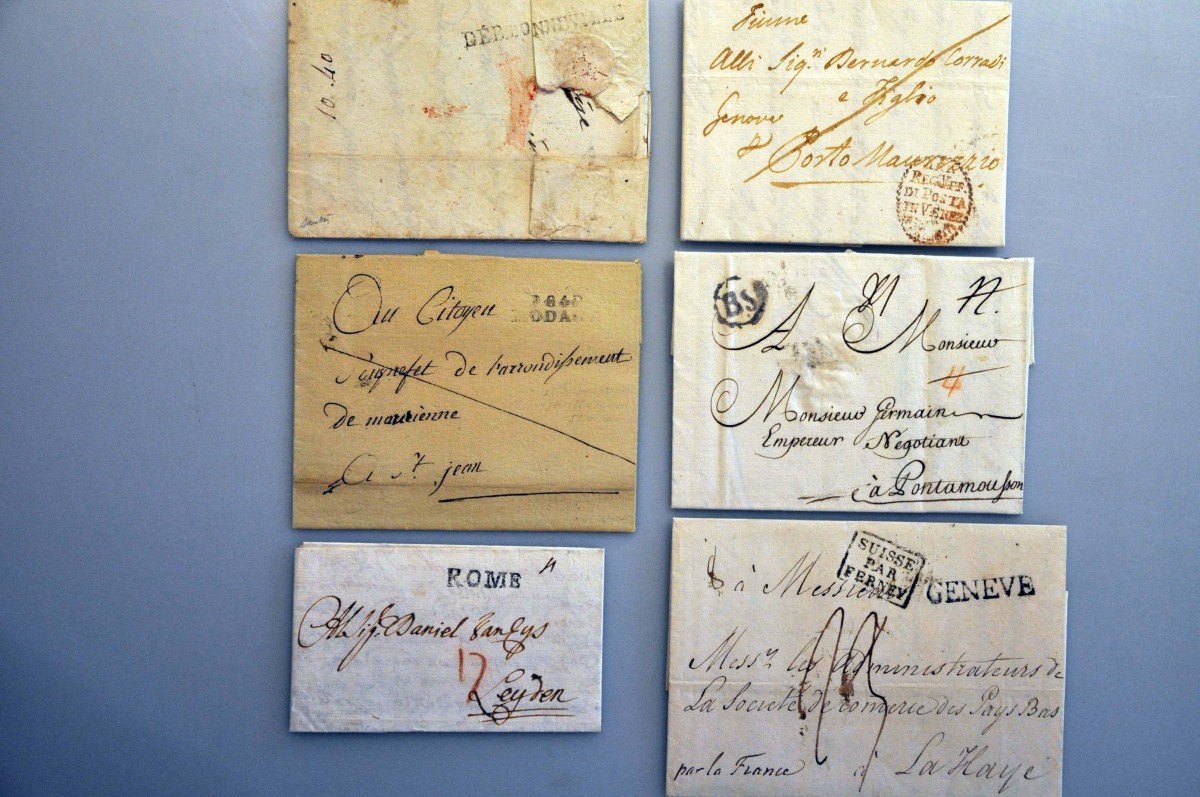 DÉB. BONNEVILLE
10 40
Fiume
Alli Sig.ri Bernardo Corradi
e Figlio
Genova
Porto Maurizzio
RECAPP
DI POSTA
IN VENEZ
Au Citoyen
P84P
MODANE
Souprefet de l'arrondissement
de maurienne
A St. jean
B.S
A Monsieur
4
Monsieur Germain
Empereur Negotiant
à Pontamousson
ROME
Al Sig. Daniel
12
Leyden
SUISSE
PAR
FERNEY
GENEVE
à Messieurs
Mess.rs les administrateurs de
La Societé de comerce des Pays Bas
par la France à La Haye